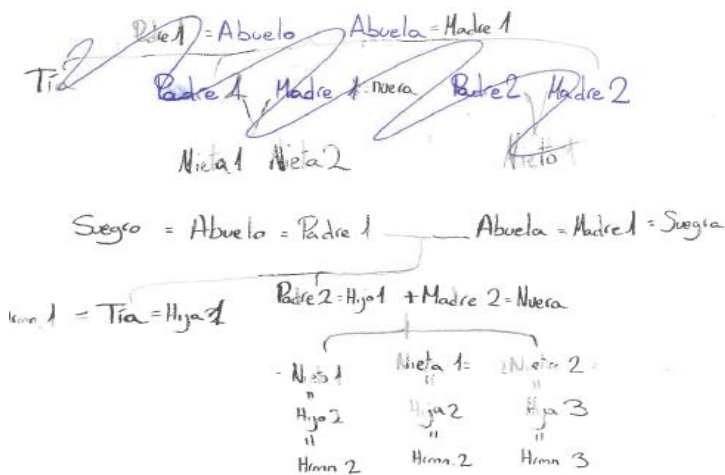 Padre 1 = Abuelo Abuela = Madre 1
Padre 1 Madre 1 = nuera Padre 2 Madre 2
Nieta 1 Nieta 2 Nieto 1
Suegro = Abuelo = Padre 1 Abuela = Madre 1 = Suegra
= Tía = Hija 1
Padre 2 = Hijo 1 + Madre 2 = Nuera
Nieto 1 Nieta 1 = Nieta 2 =
Hijo 2 Hija 2 Hija 3
Hrmn. 2 Hrmn. 2 Hrmn. 3